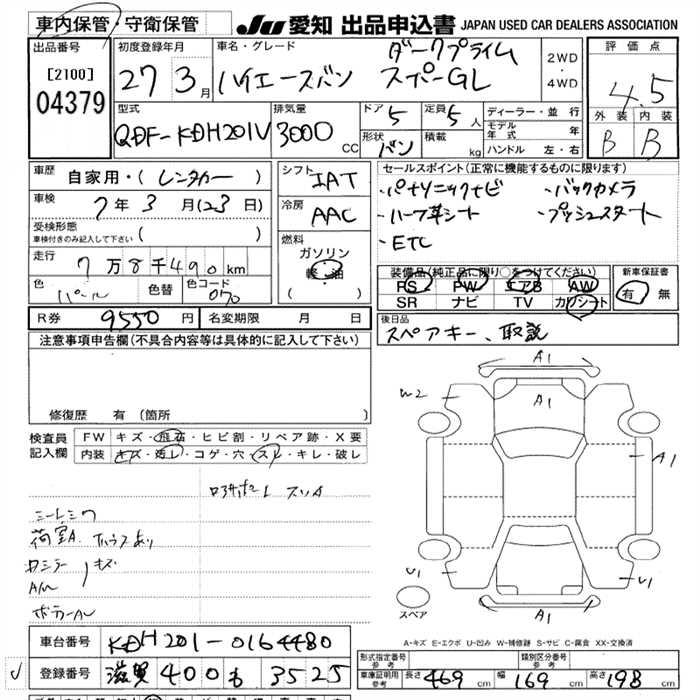 車内保管・守衛保管
JU 愛知 出品申込書 JAPAN USED CAR DEALERS ASSOCIATION
出品番号
[2100]
04379
初度登録年月
27 3月
車名・グレード
ハイエースバン ダークプライム
スーパーGL
2WD
・
4WD
評価点
4.5
外装 内装
B B
型式
QDF-KDH201V
排気量
3000 CC
ドア 5
定員 5人
形状 バン
積載 kg
ディーラー・並行
モデル年式 年
ハンドル 左・右
車歴
自家用・(レンタカー)
車検
7年3月(23日)
受検形態
車検付きのみ記入して下さい ( )
走行
7万8千490km
色 パール
色替
色コード 070
シフト IAT
冷房 AAC
燃料
ガソリン
軽油
( )
セールスポイント(正常に機能するものに限ります)
・パナソニックナビ ・バックカメラ
・ハーフ革シート ・プッシュスタート
・ETC
装備品(純正品に限り○をつけてください)
PS PW エアB AW
SR ナビ TV カワシート
新車保証書
有 無
R券 9550円
名変期限 月 日
後日品
スペアキー、取説
注意事項申告欄(不具合内容等は具体的に記入して下さい)
修復歴 有 (箇所 )
検査員
記入欄
FW キズ・飛石・ヒビ割・リペア跡・X要
内装 キズ・汚レ・コゲ・穴・スレ・キレ・破レ
シートシワ
荷室A
キズ
A1
W2
A1
A1
U1
U1
A1
スペア
A-キズ E-エクボ U-凹み W-補修跡 S-サビ C-腐食 XX-交換済
車台番号 KDH201-0164480
登録番号 滋賀 400 も 3525
形式指定番号
参考
類別区分番号
参考
車庫証明用
参考
長さ 469 cm
幅 169 cm
高さ 198 cm